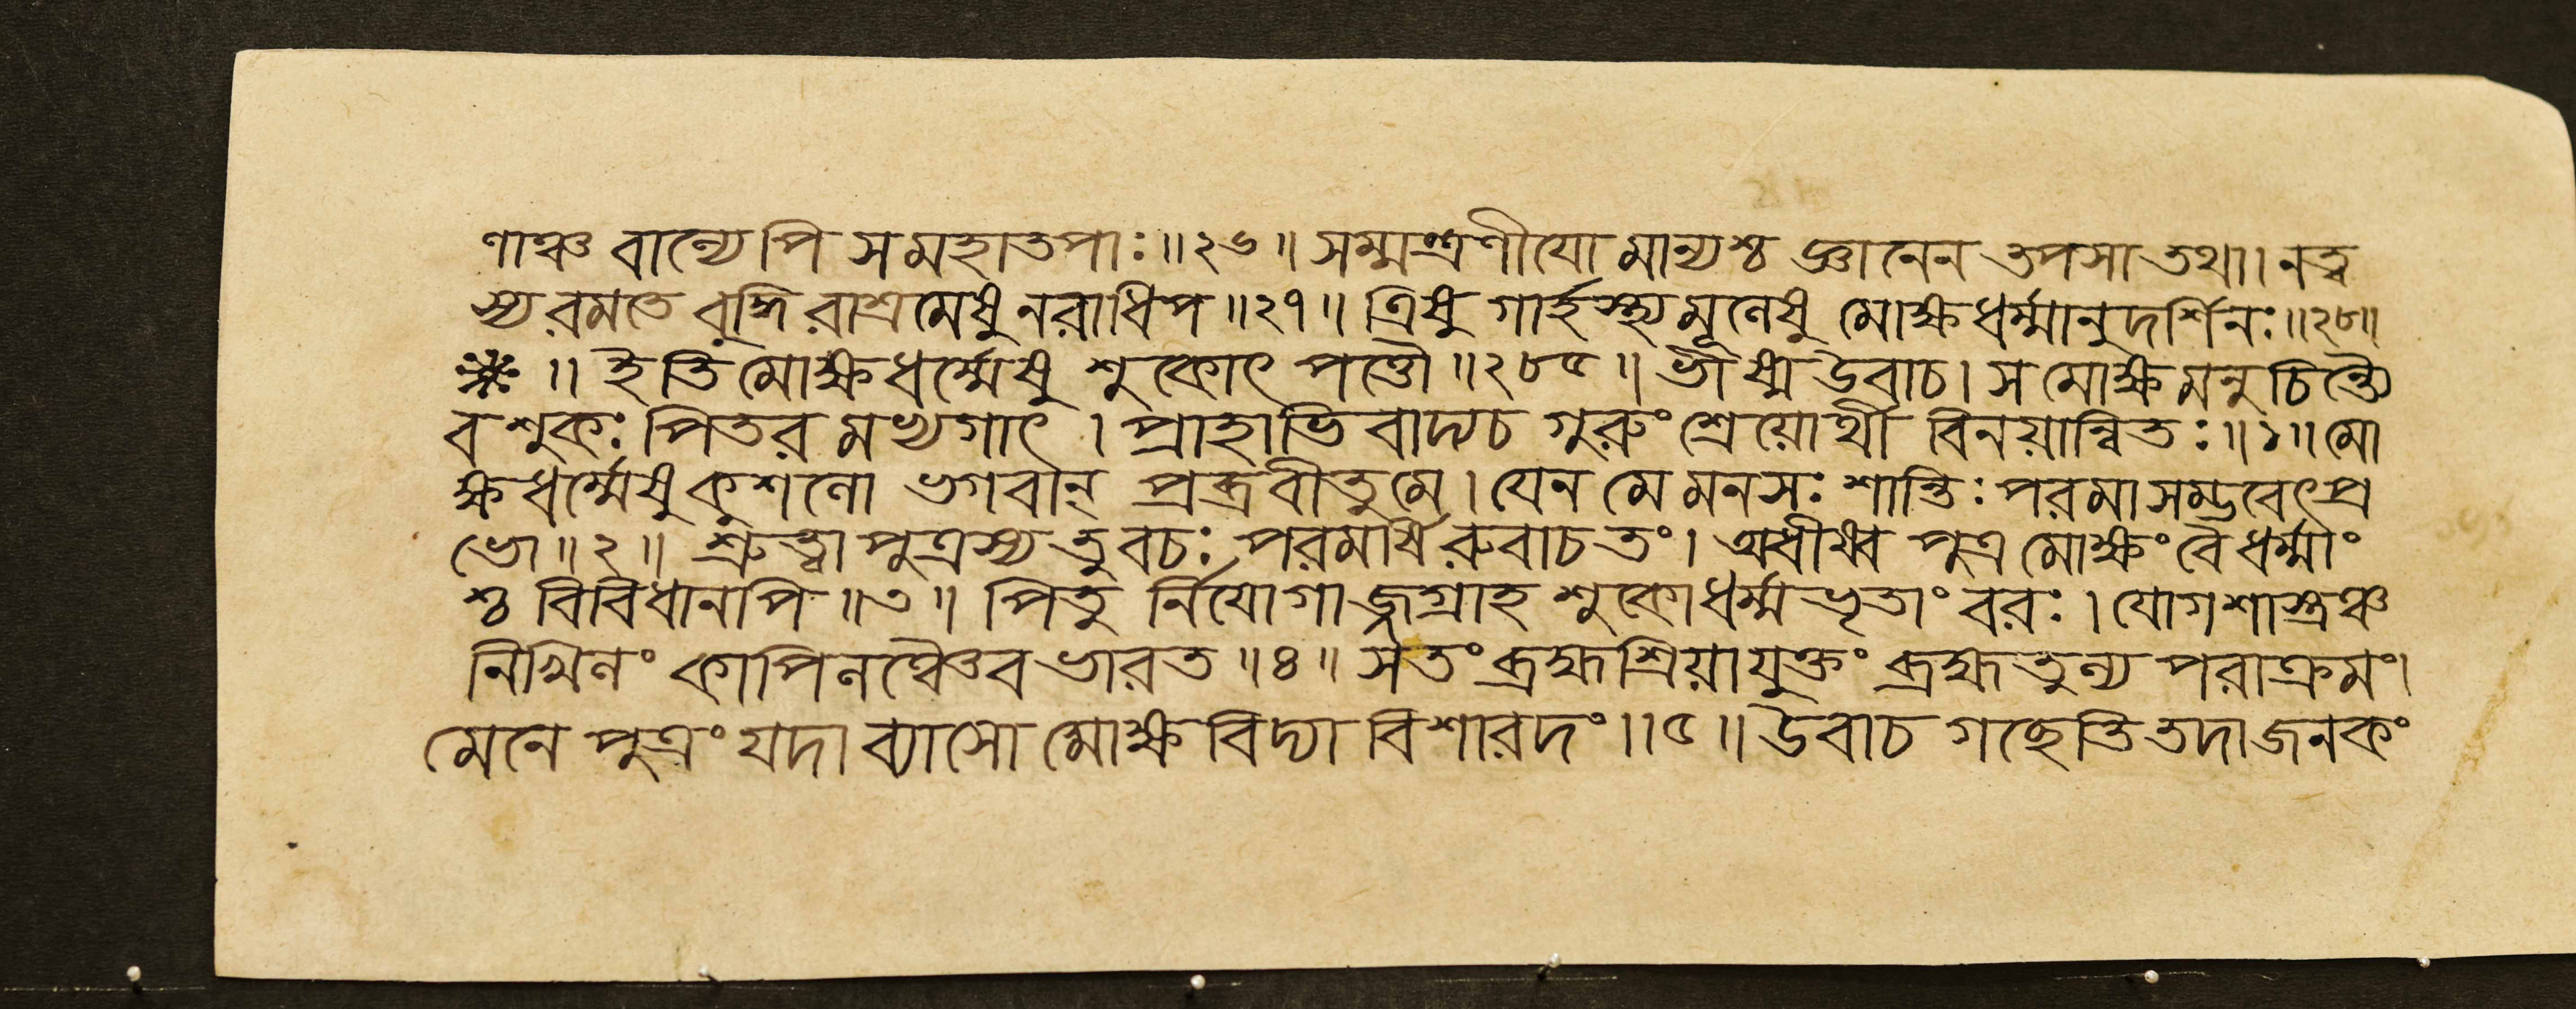 ণাঞ্চ বাল্যেপি সমহাতপাঃ॥২৬॥ সম্মন্ত্রণীযো মান্যশ্চ জ্ঞানেন তপসা তথা। নত্ব
স্য রমতে বুদ্ধিরাশ্রমেষু নরাধিপ॥২৭॥ ত্রিষু গার্হস্থ্যমূলেষু মোক্ষধর্ম্মানুদর্শিনঃ॥২৮॥
॥ ইতি মোক্ষধর্ম্মেষু শুকোৎপত্তৌ॥২৮৫॥ ভীষ্ম উবাচ। স মোক্ষমনুচিন্ত্যৈ
ব শুকঃ পিতরমভ্যগাৎ । প্রাহাভিবাদ্যচ গুরুং শ্রেয়োর্থী বিনয়ান্বিতঃ॥১॥ মো
ক্ষধর্ম্মেষু কুশলো ভগবান্ প্রব্রবীতু মে। যেন মে মনসঃ শান্তিঃ পরমা সম্ভবেৎপ্র
ভো॥২॥ শ্রুত্বা পুত্রস্য তু বচঃ পরমর্ষিরুবাচ তং। অধীষ্ব পুত্র মোক্ষং বৈ ধর্ম্মাং
শ্চ বিবিধানপি॥৩॥ পিতু র্নিযোগাজ্জগ্রাহ শুকো ধর্ম্মভৃতাং বরঃ । যোগশাস্ত্রঞ্চ
নিখিলং কাপিলঞ্চৈব ভারত॥৪॥ সতং ব্রহ্মশ্রিয়া যুক্তং ব্রহ্মতুল্য পরাক্রমং।
মেনে পুত্রং যদা ব্যাসো মোক্ষবিদ্যা বিশারদং॥৫॥ উবাচ গচ্ছেতি তদা জনকং